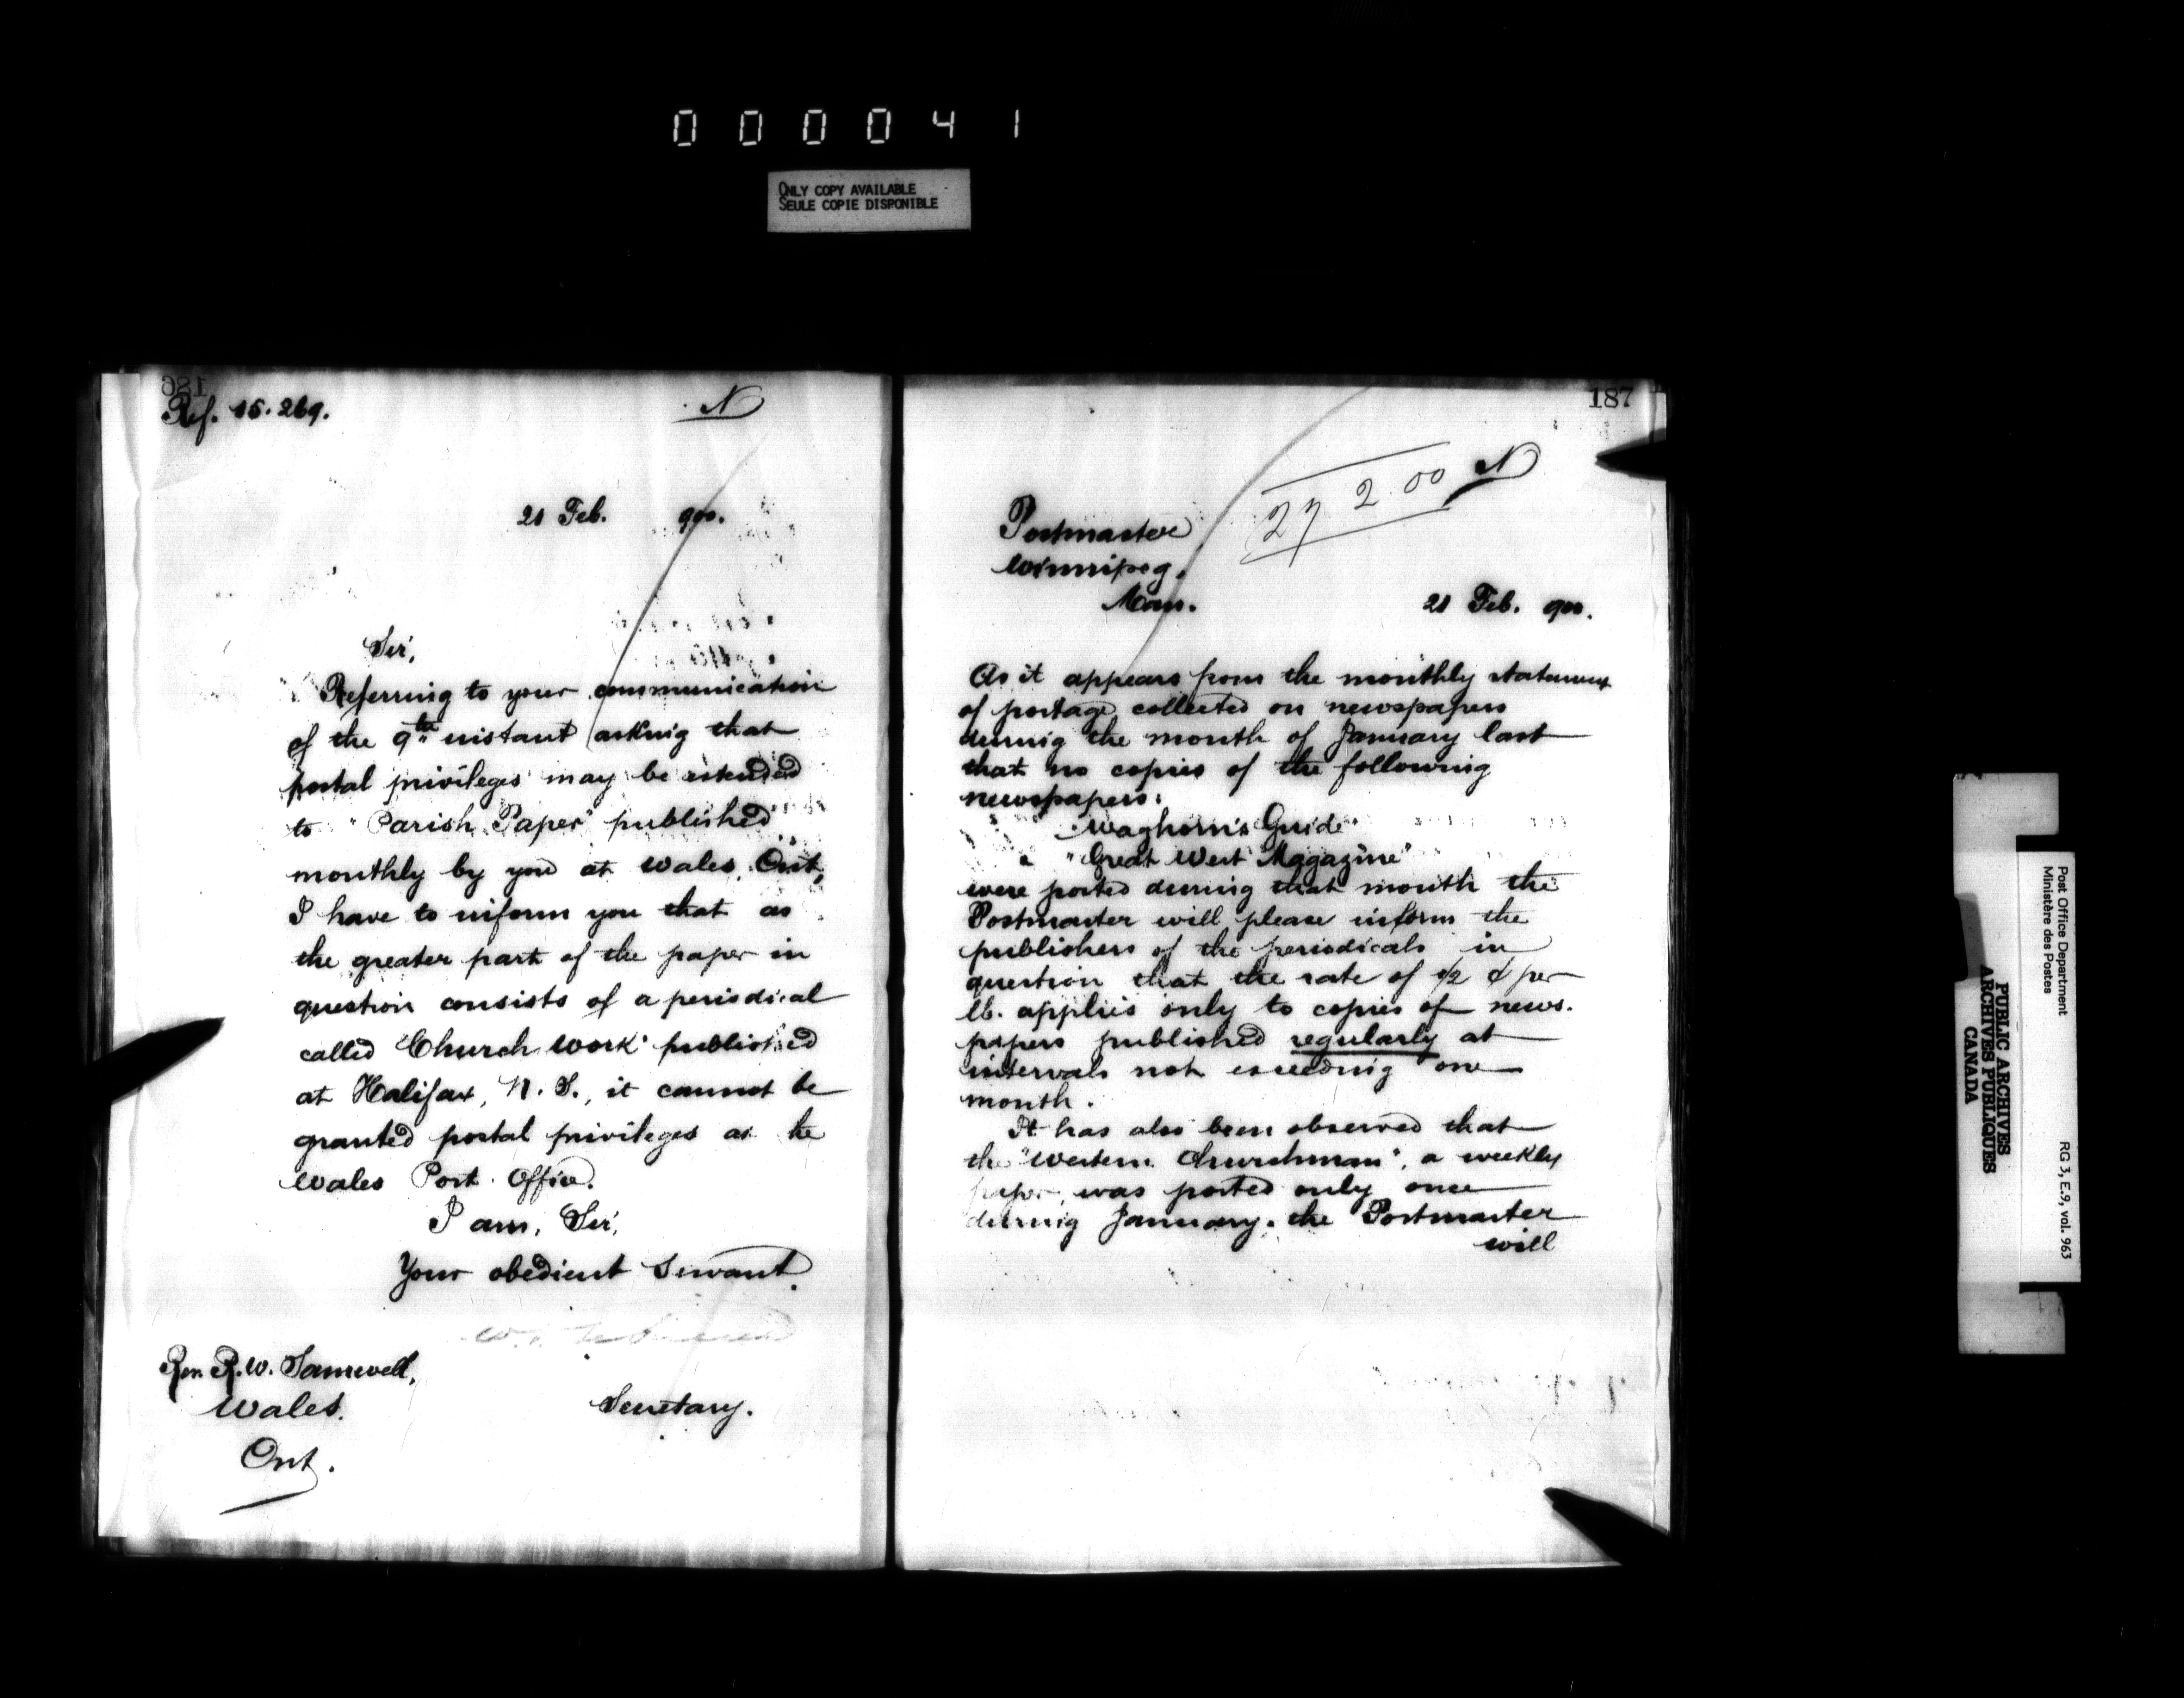 000041
ONLY COPY AVAILABLE
SEULE COPIE DISPONIBLE
186
Ref. 15.269.
N
21 Feb. 900.
Sir,
Referring to your communication
of the 9th instant asking that
postal privileges may be extended
to "Parish Paper" published
monthly by you at Wales, Ont,
I have to inform you that as
the greater part of the paper in
question consists of a periodical
called "Church Work" published
at Halifax, N. S., it cannot be
granted postal privileges at the
Wales Post Office.
I am, Sir,
Your obedient Servant.
Secretary.
Rev. R. W. Samwell,
Wales.
Ont.
187
N
27 2.00
Postmaster
Winnipeg.
Man.
21 Feb. 900.
As it appears from the monthly statement
of postage collected on newspapers
during the month of January last
that no copies of the following
newspapers:
"Waghorn's Guide"
"Great West Magazine"
were posted during that month the
Postmaster will please inform the
publishers of the periodicals in
question that the rate of 1/2 ¢ per
lb. applies only to copies of news.
papers published regularly at
intervals not exceeding one
month.
It has also been observed that
the "Western Churchman", a weekly
paper, was posted only once
during January. the Postmaster
will
Post Office Department
Ministère des Postes
RG 3, E.9, vol. 963
PUBLIC ARCHIVES
ARCHIVES PUBLIQUES
CANADA